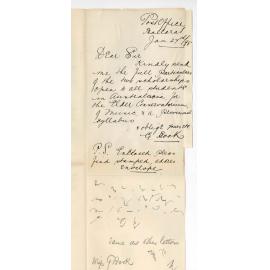 Post Office
Ballarat
Jan 22nd / 95
Dear Sir
Kindly send
me the full particulars
of the two scholarships
open to all students
in Australasia for
the Elder Conservatorium
of Music & a
syllabus
& oblige yours etc
G Hook
P.S. Enclosed please
find stamped address
envelope
same as other letters
G Hook